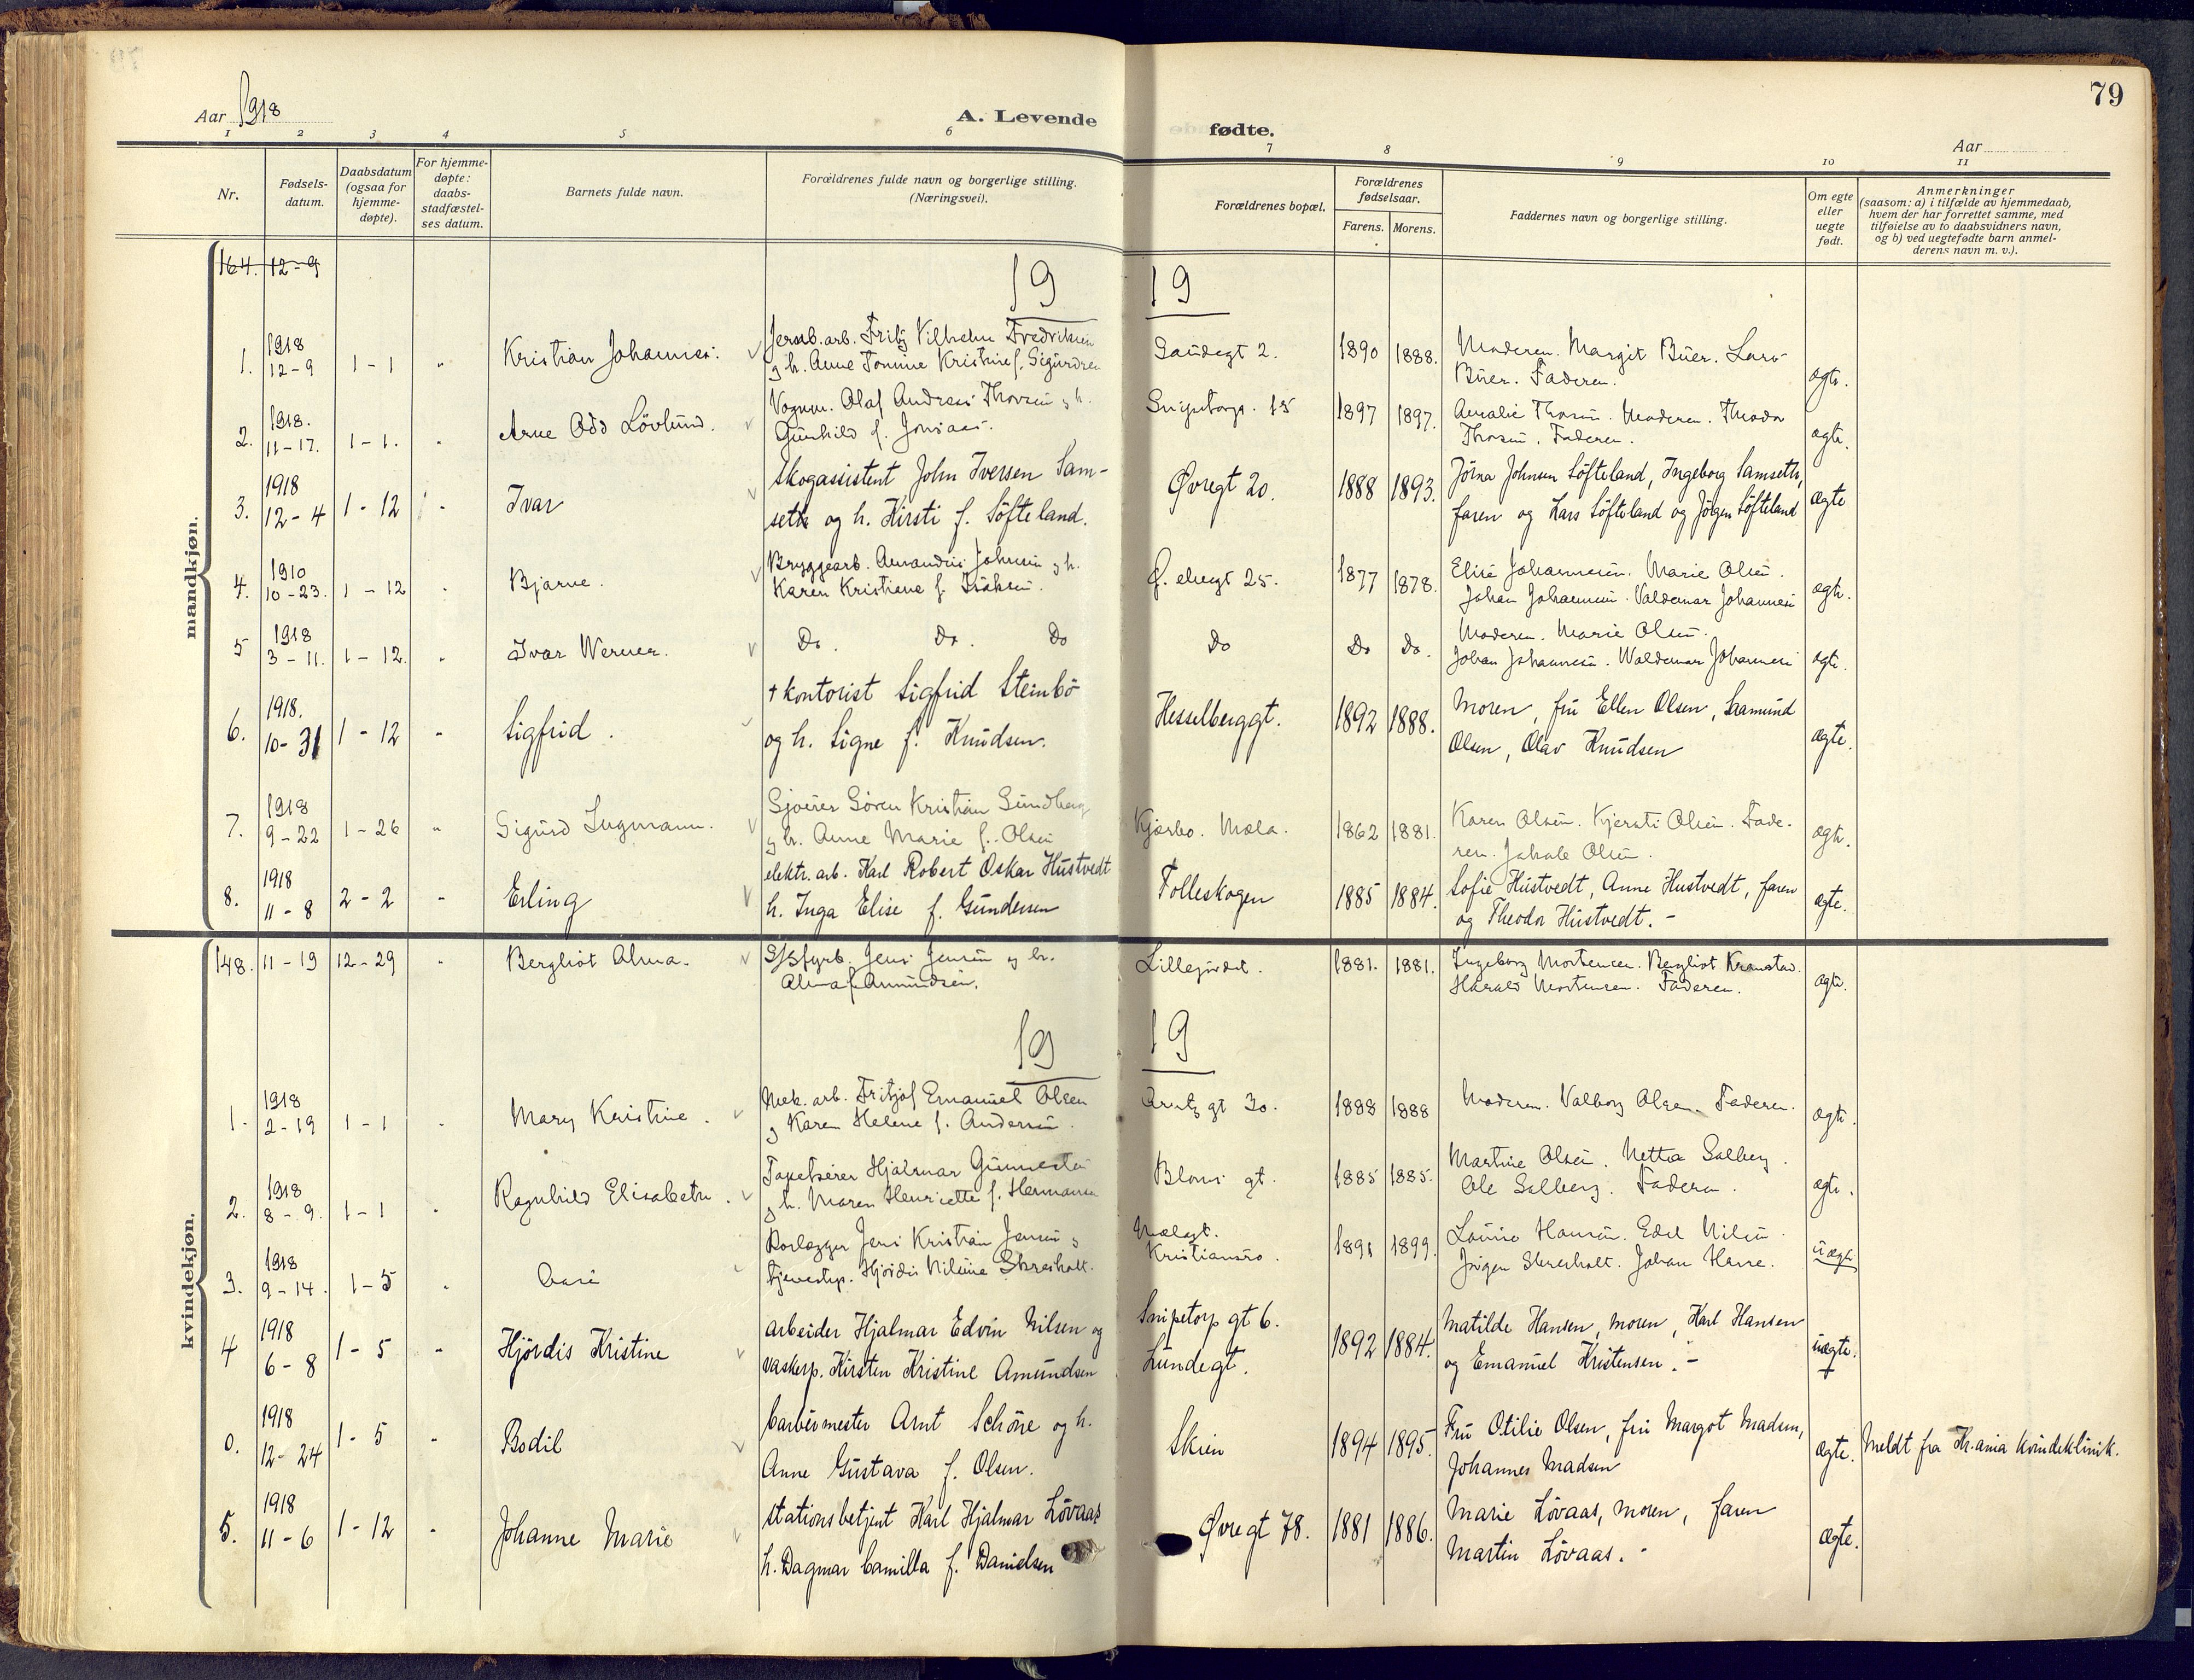 79
Aar 1918
A. Levende fødte.
Aar
1 2 3 4 5 6 7 8 9 10 11
Nr.
Fødsels-
datum.
Daabsdatum
(ogsaa for
hjemme-
døpte).
For hjemme-
døpte:
daabs-
stadfæstel-
ses datum.
Barnets fulde navn.
Forældrenes fulde navn og borgerlige stilling.
(Næringsvei).
Forældrenes bopæl.
Forældrenes
fødselsaar.
Farens. Morens.
Faddernes navn og borgerlige stilling.
Om egte
eller
uegte
født.
Anmerkninger
(saasom: a) i tilfælde av hjemmedaab,
hvem der har forrettet samme, med
tilføielse av to daabsvidners navn,
og b) ved uegtefødte barn anmel-
derens navn m. v.).
mandkjøn.
164. 12-9
19 19
1. 1918 12-9 1-1 " Kristian Johannes.
Jernb.arb. Fritz Vilhelm Fredriksen
og h. Anne Tomine Kristine f. Sigurdsen
1890 1888.
Moderen. Margit Buer. Lars
Buer. Faderen.
ægte.
2. 1918. 11-17. 1-1. " Arne Odd Lövlund.
Vognm. Olaf Andreas Thorsen og h.
Gunhild f. Jonsaas.
Snipetorp. 15 1897 1897.
Amalie Thorsen. Moderen. Theodor
Thorsen. Faderen.
ægte.
3. 1918 12-4 1-12 " Ivar
Skogassistent John Iversen Sam-
seth og h. Kirsti f. Söfteland.
Øvregt 20. 1888 1893.
Jörna Johnsen Söfteland, Ingeborg Samseth,
faren og Lars Söfteland og Jörgen Söfteland
ægte
4. 1910 10-23. 1-12 " Bjarne.
Bryggearb. Amandus Johnsen og h.
Karen Kristiane f.
25. 1877 1878.
Elise Johannesen. Marie Olsen.
Johan Johannesen. Valdemar Johannesen
ægte.
5 1918 3-11. 1-12. " Ivar Werner.
Do. Do. Do
Do Do Do.
Moderen. Marie Olsen.
Johan Johannesen. Waldemar Johannesen
ægte.
6. 1918. 10-31 1-12 " Sigfrid.
† kontorist Sigfrid Steinbö
og h. Signe f. Knudsen.
Hesselberggt. 1892 1888.
Moren, fru Ellen Olsen, Aamund
Olsen, Olav Knudsen
ægte.
7. 1918 9-22 1-26 " Sigurd Ingmann.
Sjoerer Sören Kristian Sundberg
og h. Anne Marie f. Olsen
Kjærbo. Mæla. 1862 1881.
Karen Olsen. Kjersti Olsen. Fade-
ren. Jakob Olsen.
ægte.
8. 1918 11-8 2-2 " Erling
elektr. arb. Karl Robert Oskar Hustvedt
h. Inga Elise f. Gundersen
Folleskogen 1885 1884.
Sofie Hustvedt, Anne Hustvedt, faren
og Theodor Hustvedt.-
ægte.
kvindekjøn.
148. 11-19 12-29 " Bergliot Alma.
Jens Jensen og h.
Alma f. Amundsen.
Lillegjordet. 1881. 1881.
Ingeborg Mortensen. Bergliot
Harald Mortensen. Faderen.
ægte.
19 19
1. 1918 2-19 1-1 " Mary Kristine.
Mek. arb. Fritjof Emanuel Olsen
og Karen Helene f. Andersen.
gt 30. 1888 1888
Moderen. Valborg Olsen. Faderen.
ægte.
2. 1918 8-9. 1-1 " Ragnhild Elisabeth.
Tapetserer Hjalmar
og h. Maren Henriette f. Hermansen
Bloms gt. 1885 1885.
Martine Olsen. Netta Solberg.
Ole Solberg. Faderen.
ægte.
3. 1918 9-14. 1-5 " Aase
Rørlægger Jens Kristian Jensen og
tjenestep. Hjördis Nilsine
Mælagt.
Kristiansro. 1891 1899.
Lovise Hansen. Edel Nilsen.
Jörgen Johan
uægte
4 1918 6-8 1-5 " Hjördis Kristine
Arbeider Hjalmar Edvin Nilsen og
vaskerp. Kirsten Kristine Amundsen
Snipetorp gt 6.
Lundegt. 1892 1884.
Matilde Hansen, moren, Karl Hansen
og Emanuel Kristensen.-
uægte.
0. 1918 12-24 1-5 " Bodil
barbermester Arnt Schöne og h.
Anne Gustava f. Olsen.
Skien 1894 1895.
Fru Otilie Olsen, fru Margot Madsen,
Johannes Madsen
ægte. Meldt fra Kr.ania kvindeklinik.
5. 1918 11-6 1-12 " Johanne Marie
stationsbetjent Karl Hjalmar Lövaas
h. Dagmar Camilla f. Danielsen
Øvregt 78. 1881 1886.
Marie Lövaas, moren, faren
Martin Lövaas.-
ægte.